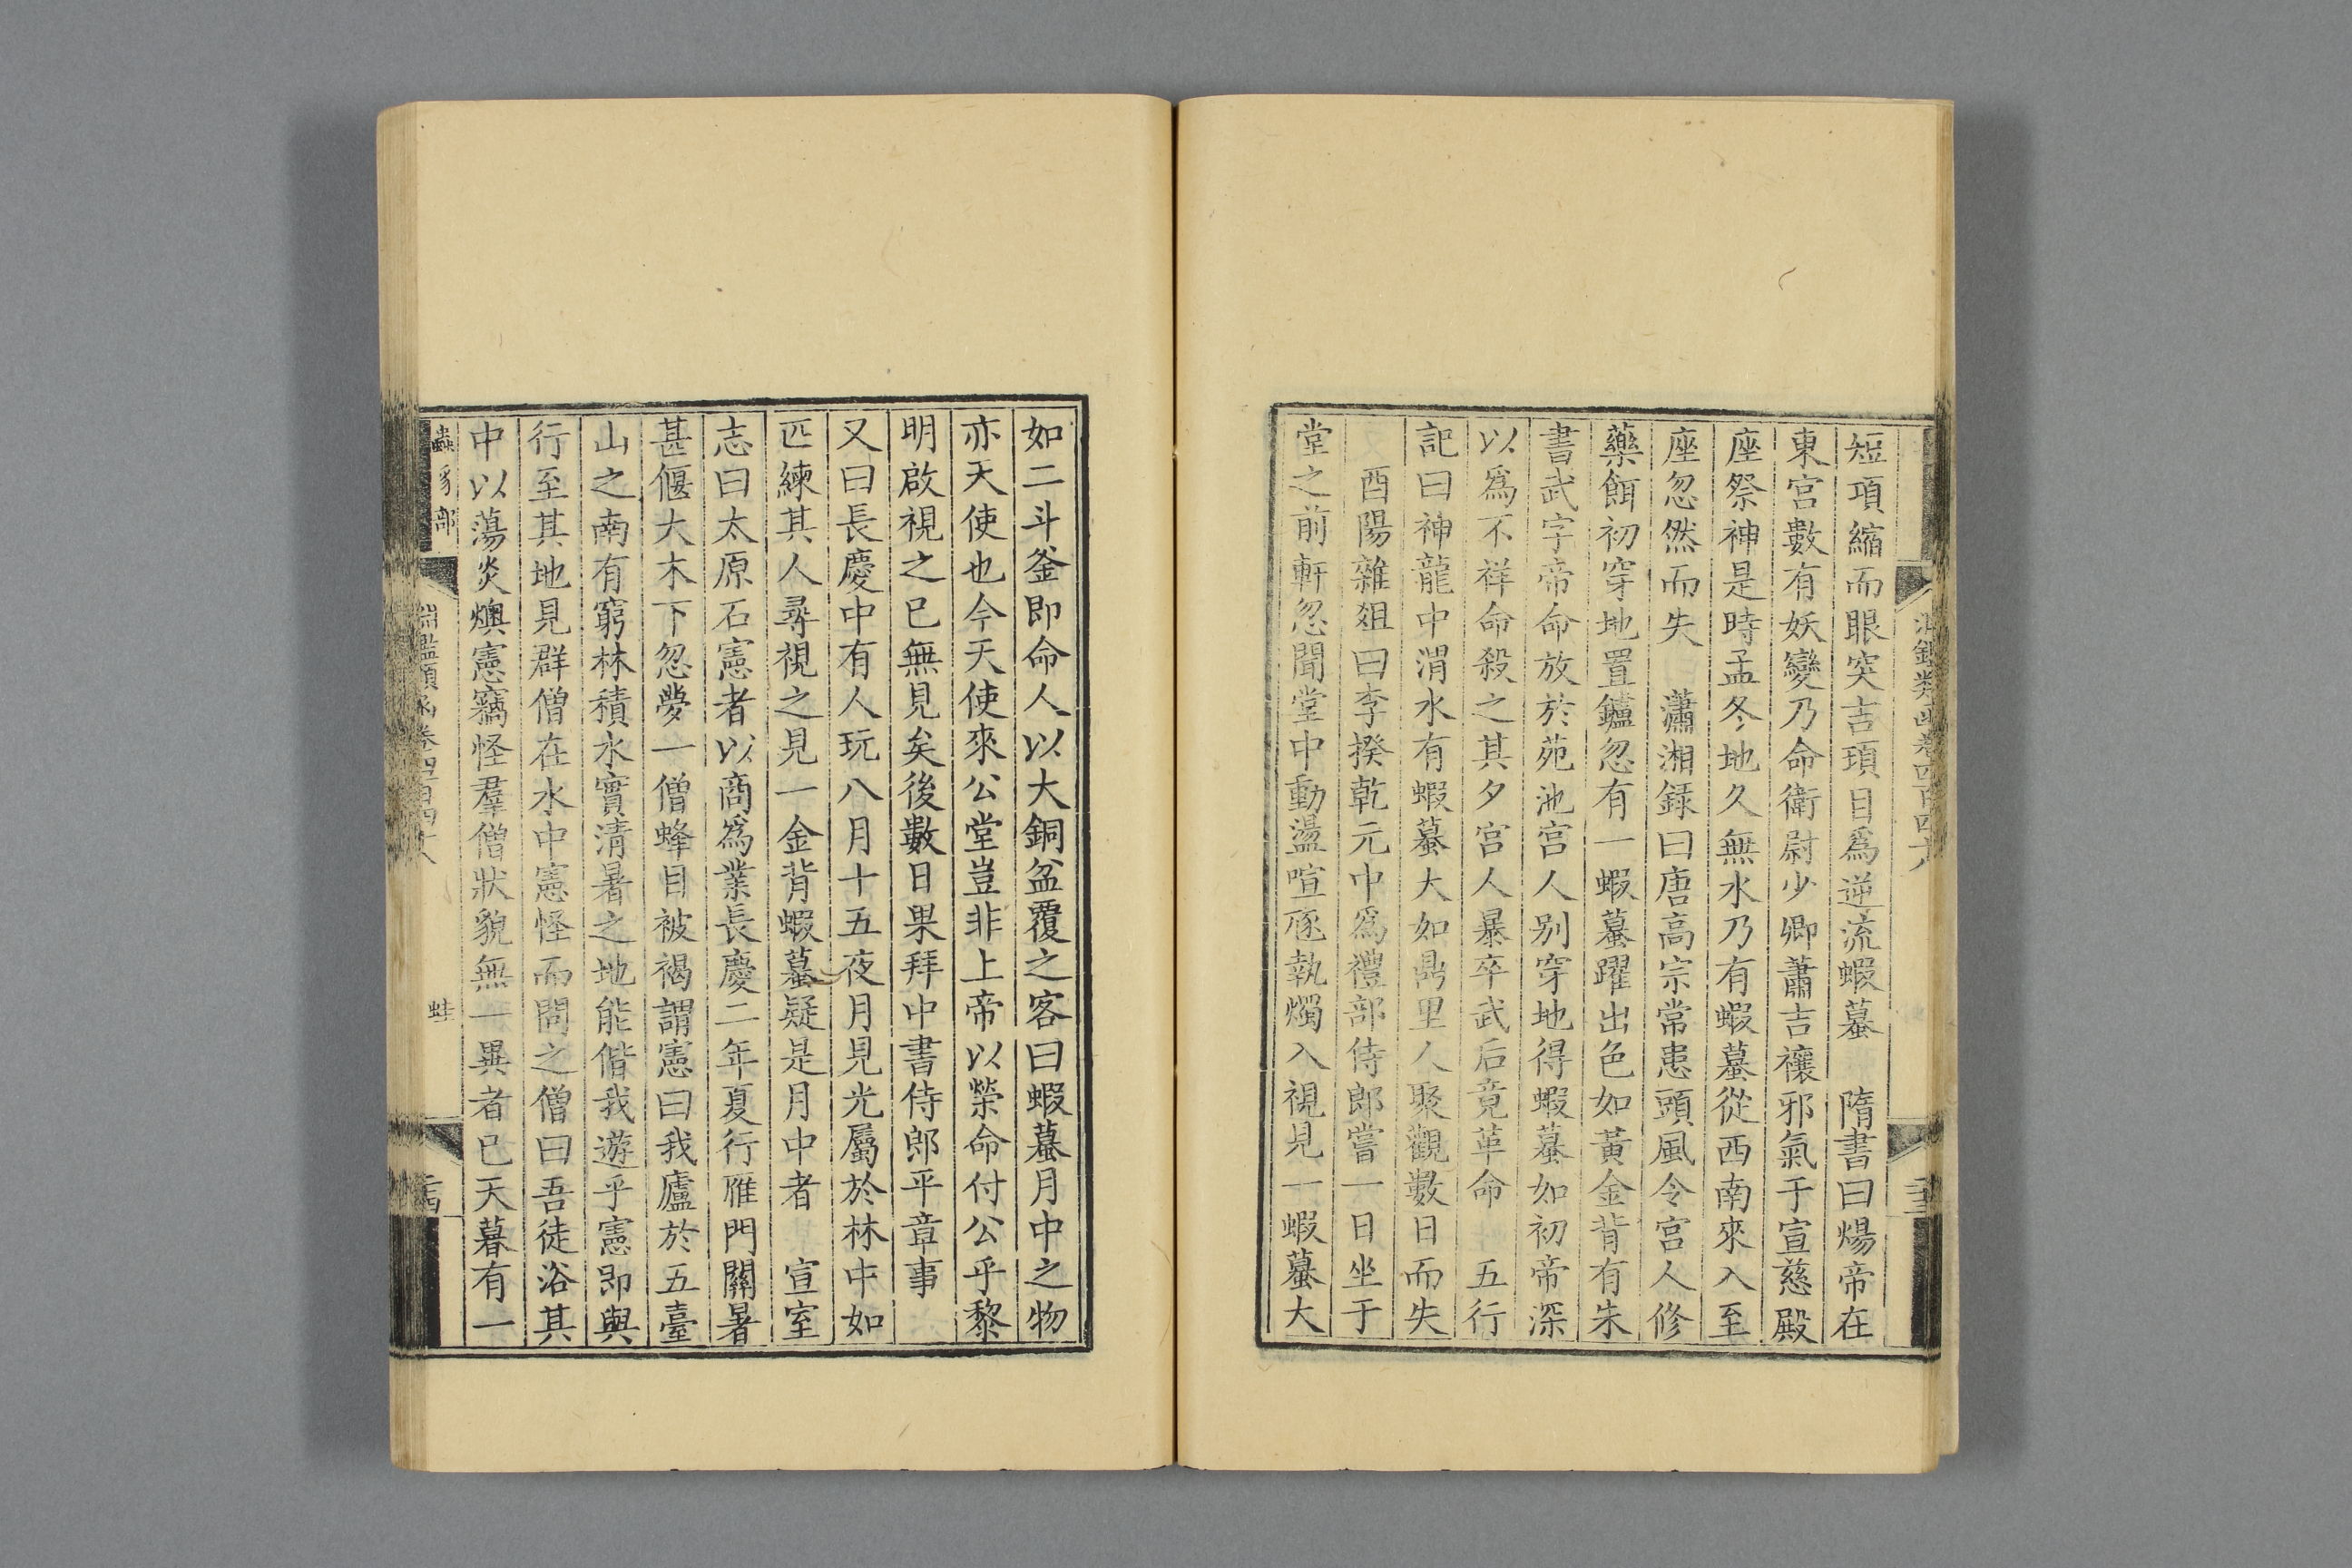 短項縮而眼突吉頊目爲逆流蝦蟇　隋書曰煬帝在
東宮數有妖變乃命衛尉少卿蕭吉禳邪氣于宣慈殿
座祭神是時孟冬地久無水乃有蝦蟇從西南來入至
座忽然而失　瀟湘録曰唐高宗常患頭風令宮人修
藥餌初穿地置鑪忽有一蝦蟇躍出色如黃金背有朱
書武字帝命放於苑池宮人別穿地得蝦蟇如初帝深
以爲不祥命殺之其夕宮人暴卒武后竟革命　五行
記曰神龍中渭水有蝦蟇大如鼎里人聚觀數日而失
酉陽雜俎曰李揆乾元中爲禮部侍郎嘗一日坐于
堂之前軒忽聞堂中動盪喧逐執燭入視見一蝦蟇大
如二斗釜即命人以大銅盆覆之客曰蝦蟇月中之物
亦天使也今天使來公堂豈非上帝以榮命付公乎黎
明啟視之已無見矣後數日果拜中書侍郎平章事
又曰長慶中有人玩八月十五夜月見光屬於林中如
匹練其人尋視之見一金背蝦蟇疑是月中者　宣室
志曰太原石憲者以商爲業長慶二年夏行雁門關暑
甚偃大木下忽夢一僧蜂目被褐謂憲曰我廬於五臺
山之南有窮林積水實清暑之地能偕我遊乎憲即與
行至其地見群僧在水中憲怪而問之僧曰吾徒浴其
中以蕩炎燠憲竊怪羣僧狀貌無一異者已天暮有一
蟲豸部
淵鑑類函卷四百四十八
蛙